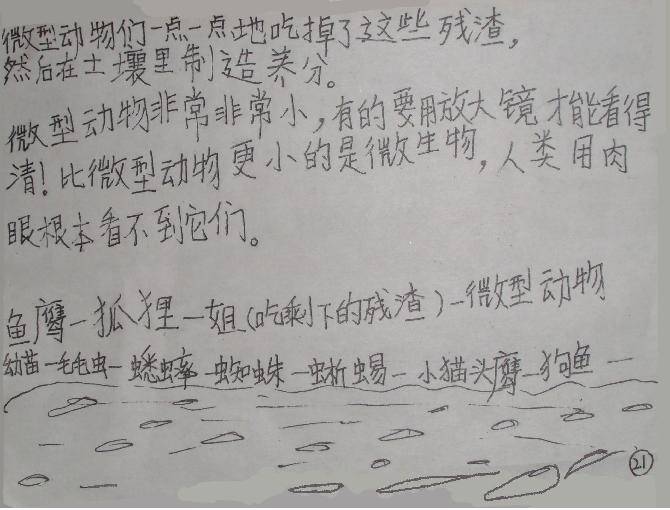 微型动物们一点一点地吃掉了这些残渣,
然后在土壤里制造养分。
微型动物非常非常小,有的要用放大镜才能看得
清!比微型动物更小的是微生物,人类用肉
眼根本看不到它们。
鱼鹰—狐狸—蛆(吃剩下的残渣)—微型动物
幼苗—毛毛虫—蟋蟀—蜘蛛—蜥蜴—小猫头鹰—狗鱼—
21